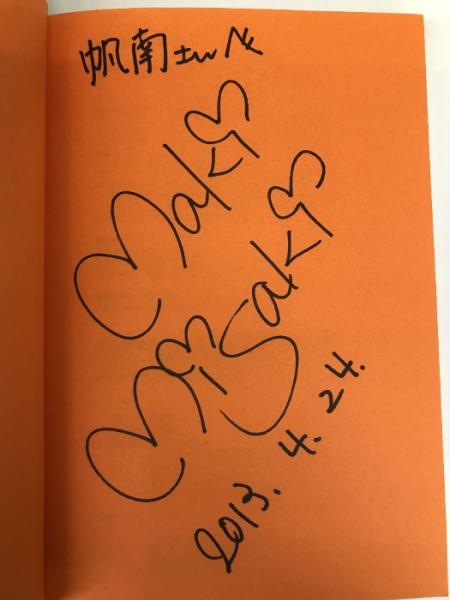 帆南さんへ
Maki
Misaki
2013. 4. 24.